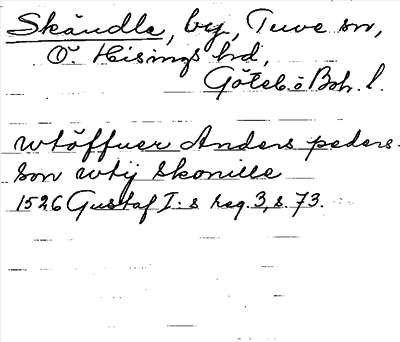 Skändla, by, Tuve sn,
Ö. Hisings hd,
Göteb. o Boh. l.
wtöffuer Anders peders-
son wtij Skonille
1526 Gustaf I:s reg. 3, s. 73.